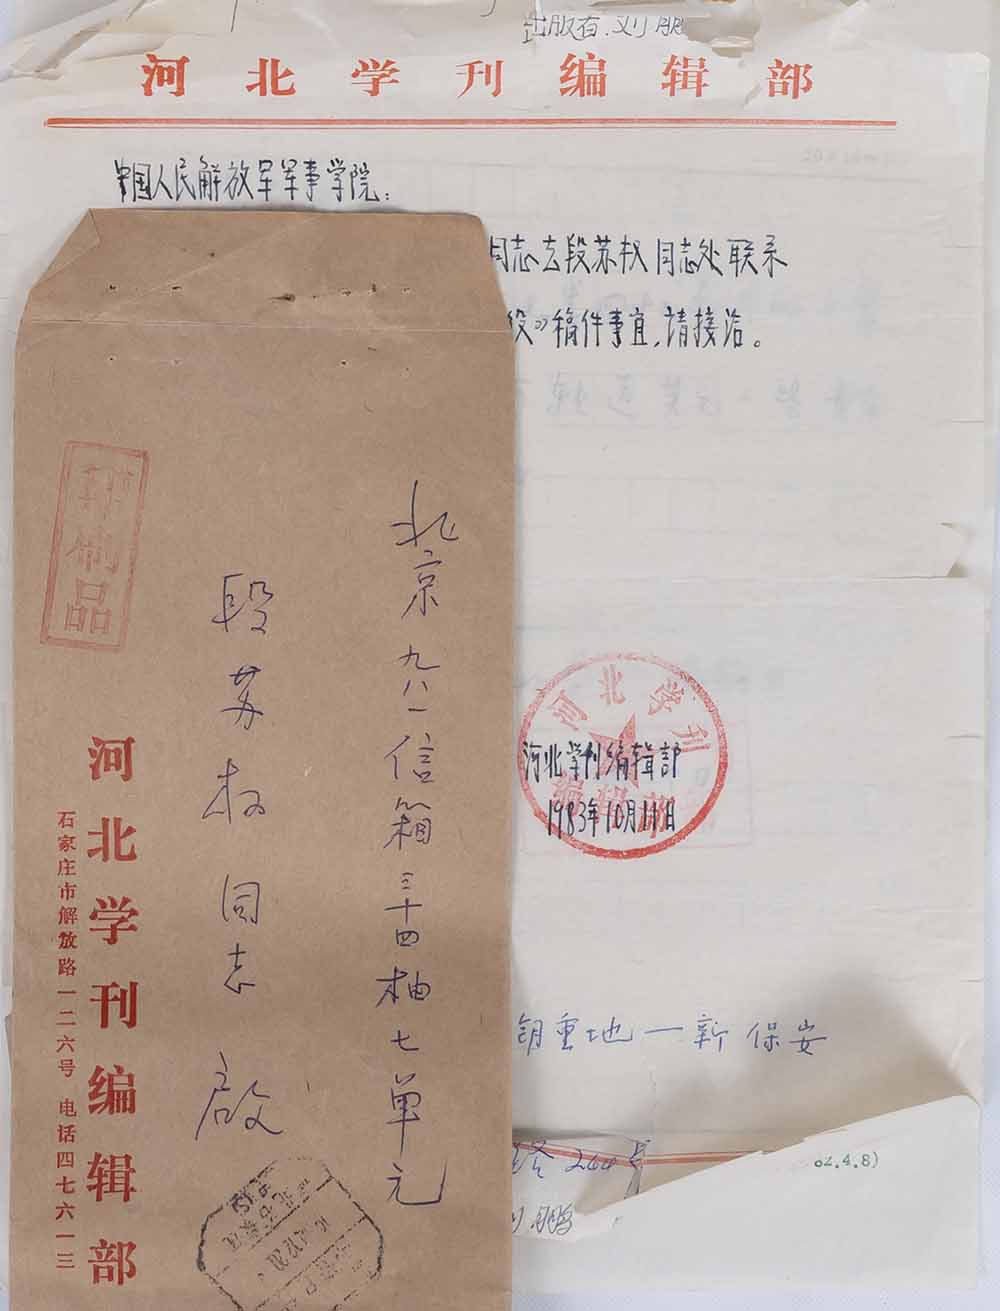 出版者.刘鹏
河北学刊编辑部
中国人民解放军军事学院：
同志去段苏权同志处联系
役》稿件事宜,请接洽。
河北学刊
编辑部
河北学刊编辑部
1983年10月11日
钥重地一新保安
240号
82.4.8)
刘鹏
印制品
北京九八一信箱三十四栋七单元
段苏权同志 启
河北学刊编辑部
石家庄市解放路一二六号 电话四七六一三